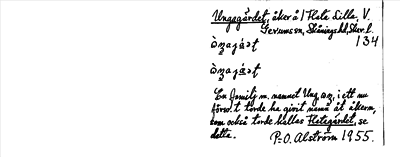 Ungagärdet, åker å 1 Flata Lilla, V.
Gerumssn, Skånings hd, Skar. l.
134
En familj m. namnet Ung i ett nu
försv. t torde ha givit namn åt åkern,
som också torde kallas Flategärdet, se
detta. P-O. Alström 1955.